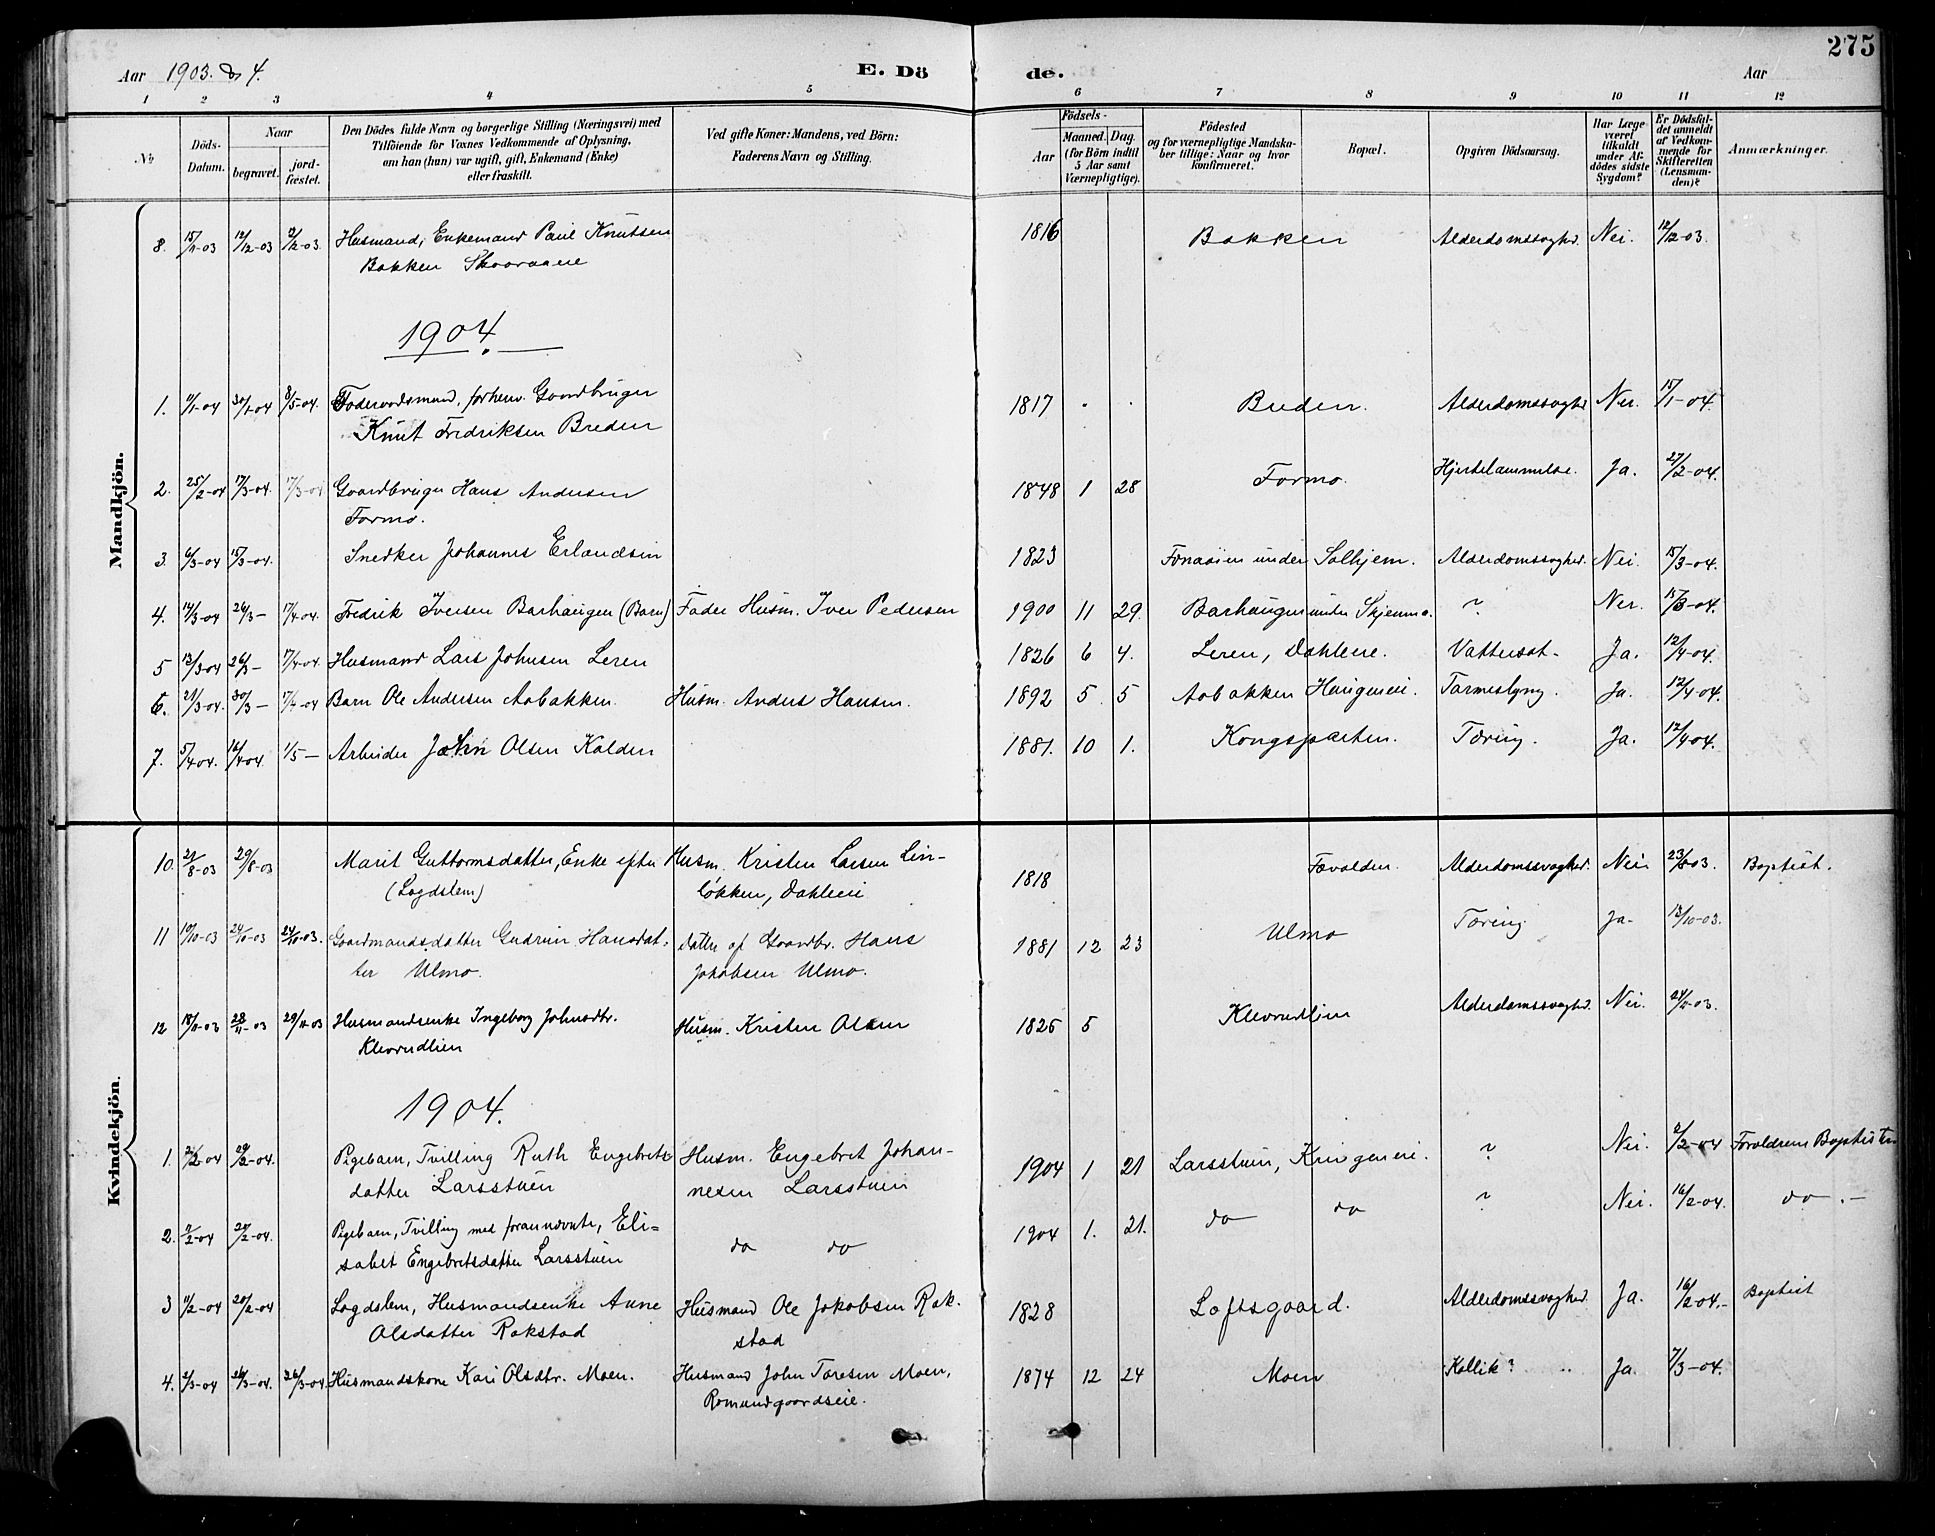 275
Aar 1903. & 4.
E. Dö de.
Aar
1 2 3 4 5 6 7 8 9 10 11 12
No
Döds-
Datum.
Naar
begravet.
jord-
fæstet.
Den Dödes fulde Navn og borgerlige Stilling (Næringsvei) med
Tilföiende for Voxnes Vedkommende af Oplysning,
om han (hun) var ugift, gift, Enkemand (Enke)
eller fraskilt.
Ved gifte Koner: Mandens, ved Börn:
Faderens Navn og Stilling.
Födsels-
Aar
Maaned. Dag.
(for Börn indtil
5 Aar samt
Værnepligtige).
Födested
og for værnepligtige Mandska-
ber tillige: Naar og hvor
konfirmeret.
Bopæl.
Opgiven Dödsaarsag.
Har Læge
været
tilkaldt
under Af-
dödes sidste
Sygdom?
Er Dödsfal-
det anmeldt
af Vedkom-
mende for
Skifteretten
(Lensman-
den)?
Anmærkninger.
Mandkjön.
8. 15/11-03 12/12-03 2/12-03. Husmand, Enkemand Paul Knutsen 1816 Bakken Alderdomssvaghd. Nei. 12/12-03.
Bakken
1904.
1. 11/1-04 30/1-04 8/5-04. Foderaadsmand, forhenv. Gaardbruger 1817 Breden. Alderdomssvaghd Nei. 15/1-04.
Knut Fredriksen Breden
2. 25/2-04 17/3-04. 17/3-04 Gaardbruger Hans Andersen 1848 1 28 Formo. Hjertelammelse. Ja. 27/2-04.
Formo.
3. 6/3-04 15/3-04. Snedker Johannes Erlandsen 1823 under Solhjem. Alderdomssvaghed. Nei. 15/3-04.
4. 14/3-04 26/3- 17/4-04. Fredrik Iversen Barhaugen (Barn) Fader Husm. Iver Pedersen 1900 11 29. Barhaugen under Skjenna. ? Nei. 15/3-04.
5 12/3-04 26/3- 17/4-04. Husmand Lars Johnsen Leren 1826 6 4. Leren, Dahleie. Vattersot. Ja. 12/4-04.
6. 21/3-04. 30/3- 17/4-04 Barn Ole Andersen Aabakken. Husm. Anders Hansen. 1892 5 5 Aabakken Haugeneie. Tarmeslyng. Ja. 12/4-04.
7. 5/4-04. 16/4-04 1/5- Arbeider John Olsen Kolden 1881. 10 1. Kongsparten. Tæring. Ja. 12/4-04.
Kvindekjön.
10. 21/8-03 29/8-03 Marit Guttormsdatter, Enke efter Husm. Kristen Larsen Lin- 1818 Alderdomssvaghed. Nei 23/8-03. Baptist.
(Lægdslem) løkken, Dahleeie
11 10/10-03 24/10-03 24/10-03. Gaardmandsdatter Gudrun Hansdat- datter af Gaardbr. Hans 1881 12 23 Ulmo Tæring Ja- 13/10-03.
ter Ulmo. Jakobsen Ulmo.
12 18/11-03 28/11-03 29/11-03 Husmandsenke Ingeborg Johnsdtr. Husm. Kristen Olsen 1825 5 Klevrudlien Alderdomssvaghed. Nei. 24/11-03.
Klevrudlien
1904.
1. 2/2-04 20/2-04. Pigebarn, Tvilling Ruth Engebrets- Husm. Engebret Johan- 1904 1 21 Larsstuen, Kringeneie. ? Nei. 2/2-04 Forældrene Baptister
datter Larsstuen nesen Larsstuen
2. 9/2-04 20/2-04. Pigebarn, Tvilling med forannævnte, Eli- do do 1904 1. 21. do do ? Nei. 16/2-04. do.-
sabet Engebretsdatter Larsstuen
3 11/2-04 20/2-04 Lægdslem, Husmandsenke Anne Husmand Ole Jakobsen Rak- 1828 Loftsgaard. Alderdomssvaghed Ja. 16/2-04.- Baptist
Olsdatter Rakstad stad
4. 2/3-04 26/3-04. 26/3-04. Husmandskone Kari Olsdtr. Moen. Husmand John Toresen Moen, 1874 12 24 Moen Kollik? Ja. 7/3-04.
Romundgaardseie.